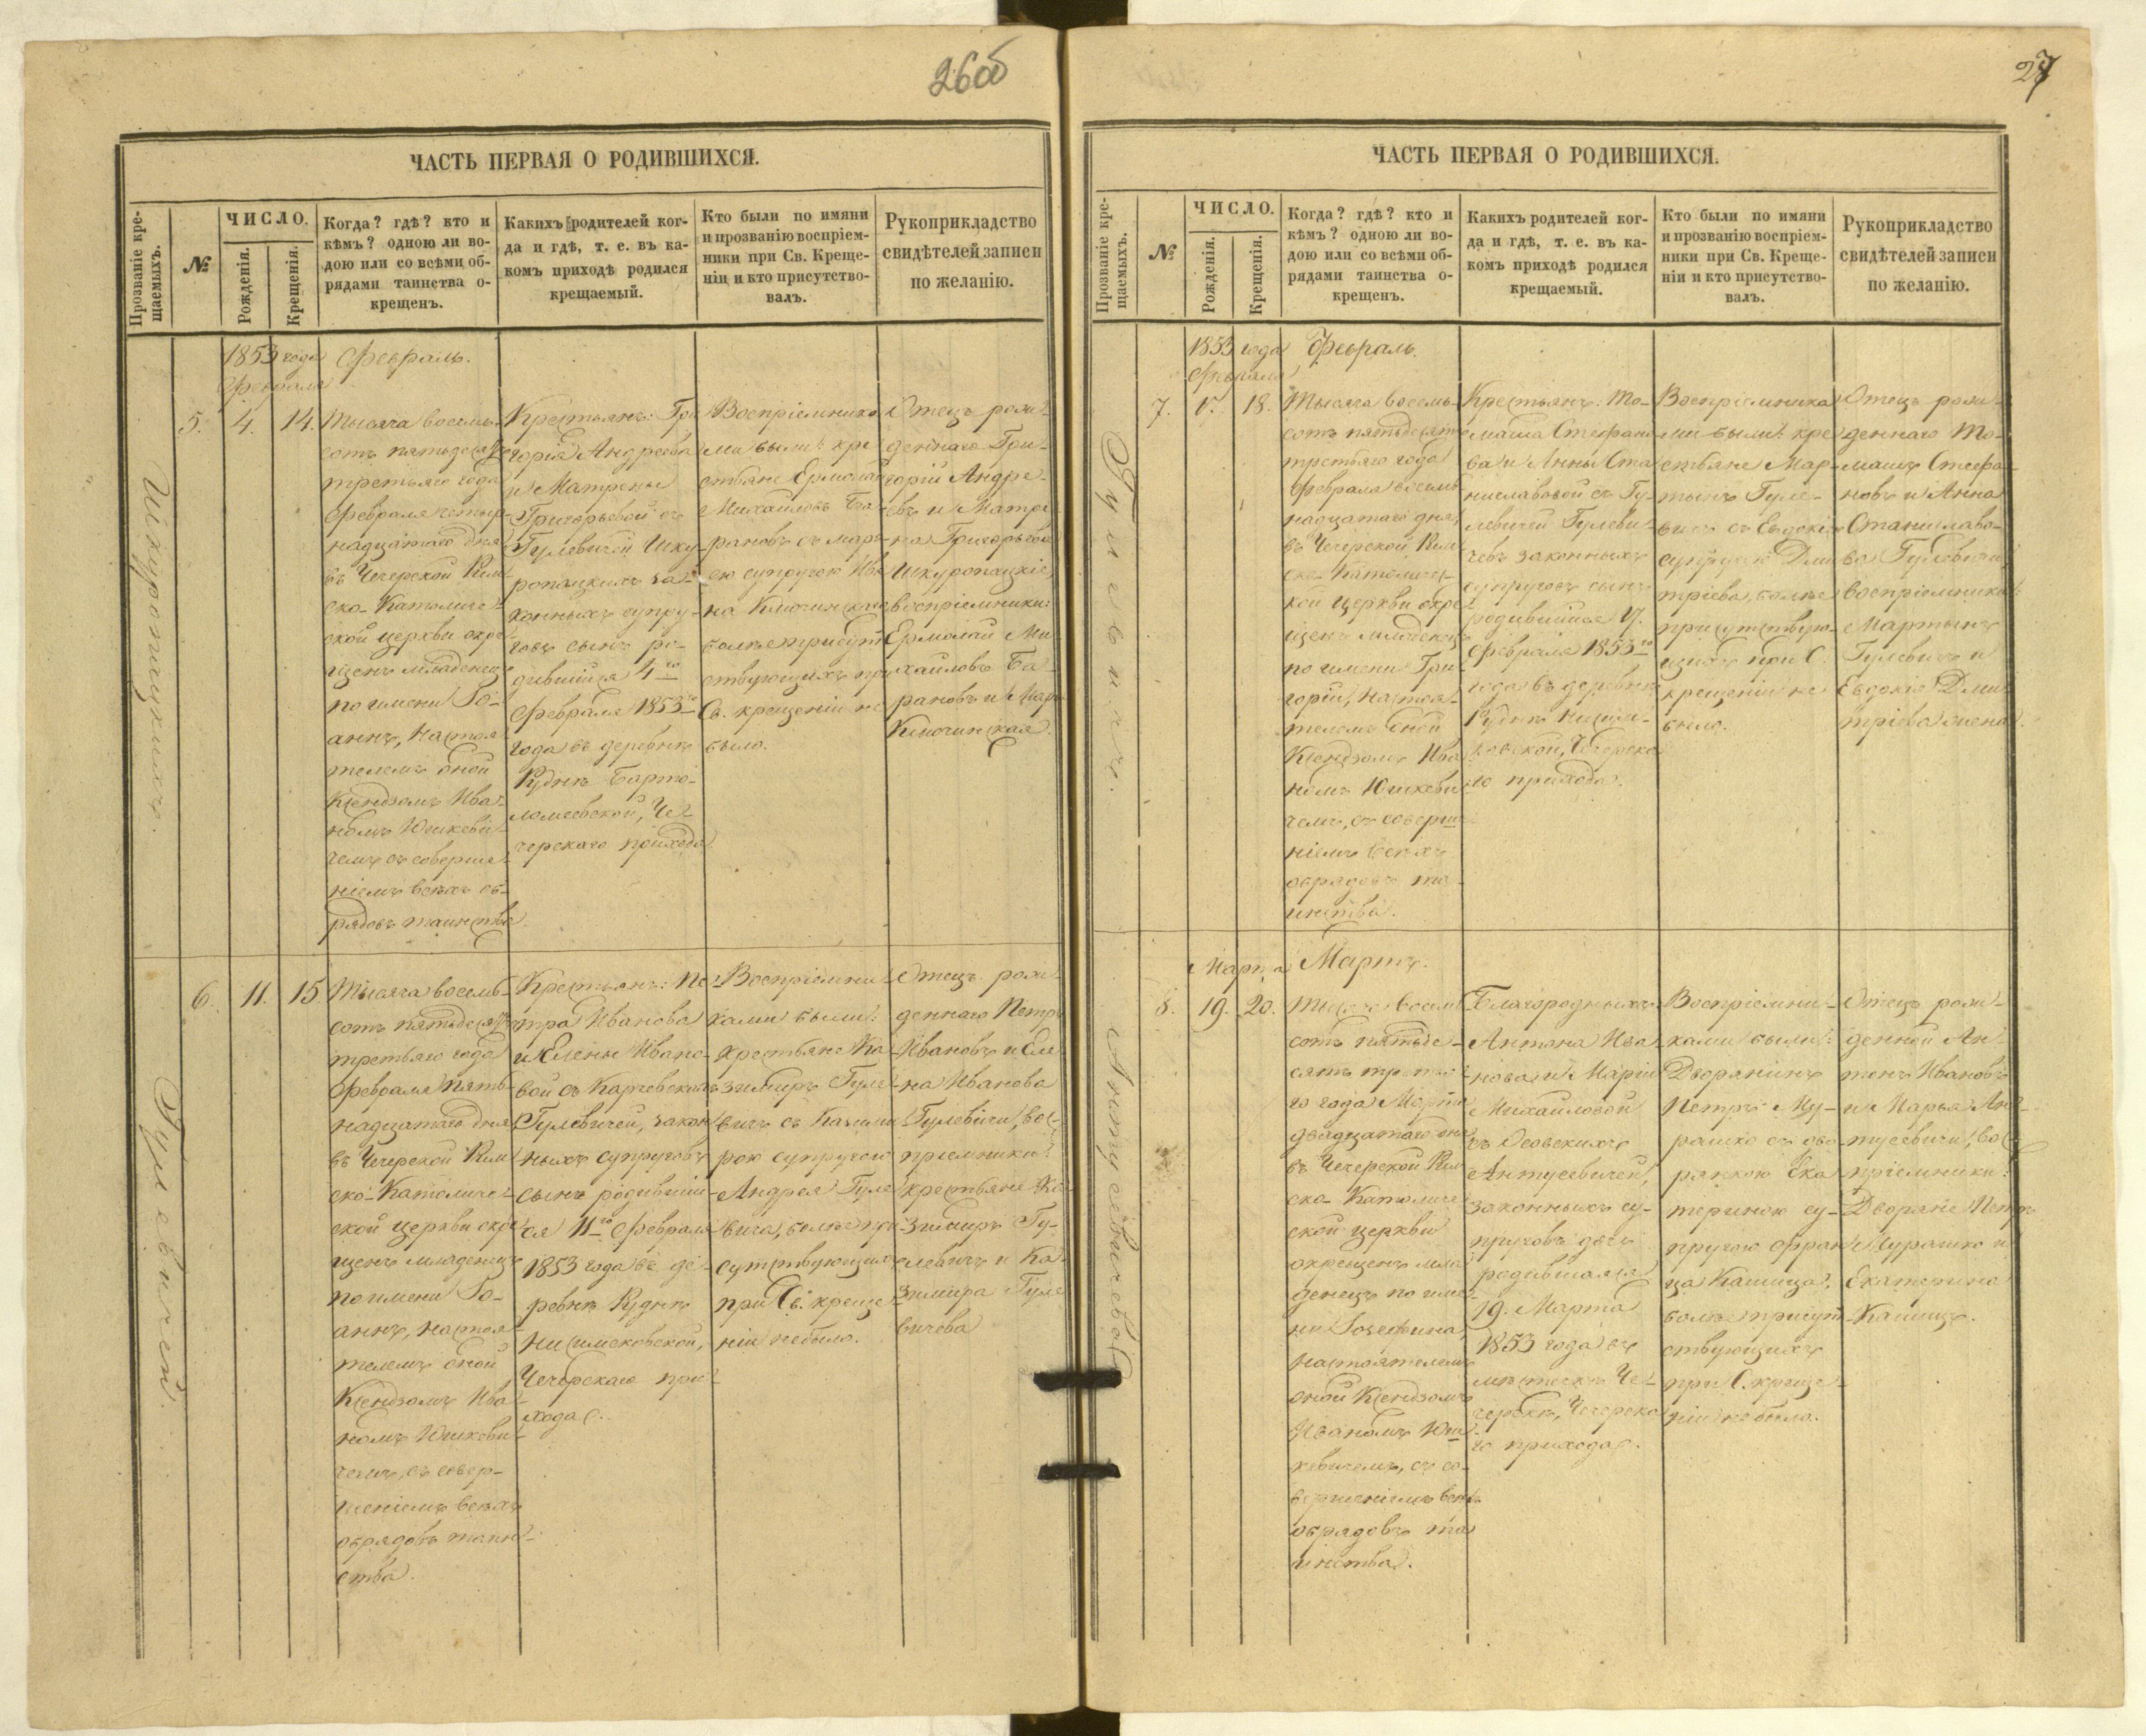 26об
ЧАСТЬ ПЕРВАЯ О РОДИВШИХСЯ.
Прозваніе кре-
щаемыхъ.
№
ЧИСЛО.
Рожденія.
Крещенія.
Когда? гдѣ? кто и
кѣмъ? одною ли во-
дою или со всѣми об-
рядами таинства о-
крещенъ.
Какихъ родителей ког-
да и гдѣ, т. е. въ ка-
комъ приходѣ родился
крещаемый.
Кто были по имяни
и прозванію воспріем-
ники при Св. Креще-
ніи и кто присутство-
валъ.
Рукоприкладство
свидѣтелей записи
по желанію.
1853 года
Февраля
Февраль.
Шкуропацкихъ.
5.
4.
14.
Тысяча восемь-
сотъ пятьдесятъ
третьяго года
Февраля четыр-
надцатаго дня
въ Чечерской Рим-
ско-Католиче-
ской церкви окре-
щенъ младенецъ
по имени Іо-
аннъ, настоя-
телемъ оной
Ксендзомъ Ива-
номъ Юшкеви-
чемъ съ соверше-
ніемъ всѣхъ об-
рядовъ таинства.
Крестьянъ: Гри
горія Андреева
и Матрены
Григорьевой съ
Гулевичей Шку-
ропацкихъ за-
конныхъ супру-
говъ сынъ ро-
дившійся 4го
Февраля 1853го
года въ деревнѣ
Руднѣ Барто-
ломеевской, Че-
черскаго прихода
Воспріемника
ми были: кре
стьяне Ермолай
Михайловъ Ба-
рановъ съ Марь-
ею супругою Ива
на Ключинскаго
болѣе присут
ствующихъ при
Св. крещеніи не
было.
Отецъ рож-
деннаго Гри-
горій Андре-
евъ и Матре
на Григорьева
Шкуропацкіе,
воспріемники:
Ермолай Ми-
хайловъ Ба-
рановъ и Марья
Ключинская.
Гулевичей.
6.
11.
15.
Тысяча восемь-
сотъ пятьдесятъ
третьяго года
Февраля пят-
надцатаго дня
въ Чечерской Рим
ско-Католиче-
ской церкви окре
щенъ младенецъ
по имени Іо-
аннъ, настоя-
телемъ оной
Ксендзомъ Ива-
номъ Юшкеви-
чемъ, съ совер-
шеніемъ всѣхъ
обрядовъ таин-
ства.
Крестьянъ: Пе-
тра Иванова
и Елены Ивано-
вой съ Карчевскихъ
Гулевичей, закон
ныхъ супруговъ
сынъ родившій-
ся 11го Февраля
1853 года въ де-
ревнѣ Руднѣ
Нисимковской,
Чечерскаго при-
хода.
Воспріемни-
ками были:
крестьяне Ка-
зимиръ Гуле-
вичъ съ Казими
рою супругою
Андрея Гуле
вича, болѣе при
сутствующихъ
при Св. креще-
ніи небыло.
Отецъ рож-
деннаго Петръ
Ивановъ и Еле
на Иванова
Гулевичи, вос-
пріемники:
крестьяне Ка
зимиръ Гу-
левичъ и Ка-
зимира Гуле
вичова
27
ЧАСТЬ ПЕРВАЯ О РОДИВШИХСЯ.
Прозваніе кре-
щаемыхъ.
№
ЧИСЛО.
Рожденія.
Крещенія.
Когда? гдѣ? кто и
кѣмъ? одною ли во-
дою или со всѣми об-
рядами таинства о-
крещенъ.
Какихъ родителей ког-
да и гдѣ, т. е. въ ка-
комъ приходѣ родился
крещаемый.
Кто были по имяни
и прозванію воспріем-
ники при Св. Креще-
ніи и кто присутство-
валъ.
Рукоприкладство
свидѣтелей записи
по желанію.
1853 года
Февраля
Февраль.
Гулевичъ.
7.
18.
Тысяча восемь-
сотъ пятьдесятъ
третьяго года
Февраля восемь
надцатаго дня,
въ Чечерской Рим
ско-Католичес-
кой церкви окре
щенъ младенецъ
по имени Гри-
горій, настоя-
телемъ оной
Ксендзомъ Ива
номъ Юшкеви
чемъ, съ соверше
ніемъ всѣхъ
обрядовъ та-
инства.
Крестьянъ: То-
маша Стефано
ва и Анны Ста
ниславовой съ Гу-
левичей Гулеви-
чевъ законныхъ
супруговъ сынъ
родившійся
Февраля 1853го
года въ деревнѣ
Руднѣ Нисим-
ковской, Чечерска
го прихода.
Воспріемника
ми были: кре
стьяне Мар-
тынъ Гуле-
вичъ съ Евдокіею
супругою Дми
тріева, болѣе
присутствую-
щихъ при С.
крещеніи не
было.
Отецъ рож-
деннаго То-
машъ Стефа-
новъ и Анна
Станиславо-
ва Гулевичи,
воспріемники:
Мартынъ
Гулевичъ и
Евдокія Дми
тріева жена.
Марта
Мартъ.
Антусевичевой
8.
19.
20.
Тысяча восемь
сотъ пятьде-
сятъ третья-
го года Марта
двадцатаго дня
въ Чечерской Рим
ско-Католиче
ской церкви
окрещенъ мла
денецъ по име-
ни Іозефина,
настоятелемъ
оной Ксендзомъ
Иваномъ Юш-
кевичемъ, съ со-
вершеніемъ всѣхъ
обрядовъ та
инства.
Благородныхъ:
Антона Ива
нова и Маріи
Михайловой
съ Осовскихъ
Антусевичей,
законныхъ су-
пруговъ дочь
родившаяся
19. Марта
1853 года въ
мѣстечкѣ Че-
черскѣ, Чечерска
го прихода.
Воспріемни-
ками были:
Дворянинъ
Петръ Му-
рашко съ дво
рянкою Ека
териною су-
пругою Фран
ца Кашица,
болѣе присут
ствующихъ
при С. креще-
ніи небыло.
Отецъ рож-
денной Ан-
тонъ Ивановъ
и Марья Ан-
тусевичи, вос
пріемники:
Дворяне Петръ
Мурашко и
Екатерина
Кашицъ.